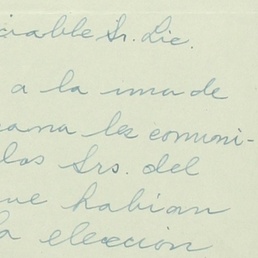 ciable Sr. Lic.
a la una de
ana les comuni-
los Srs. del
ue habian
a elección